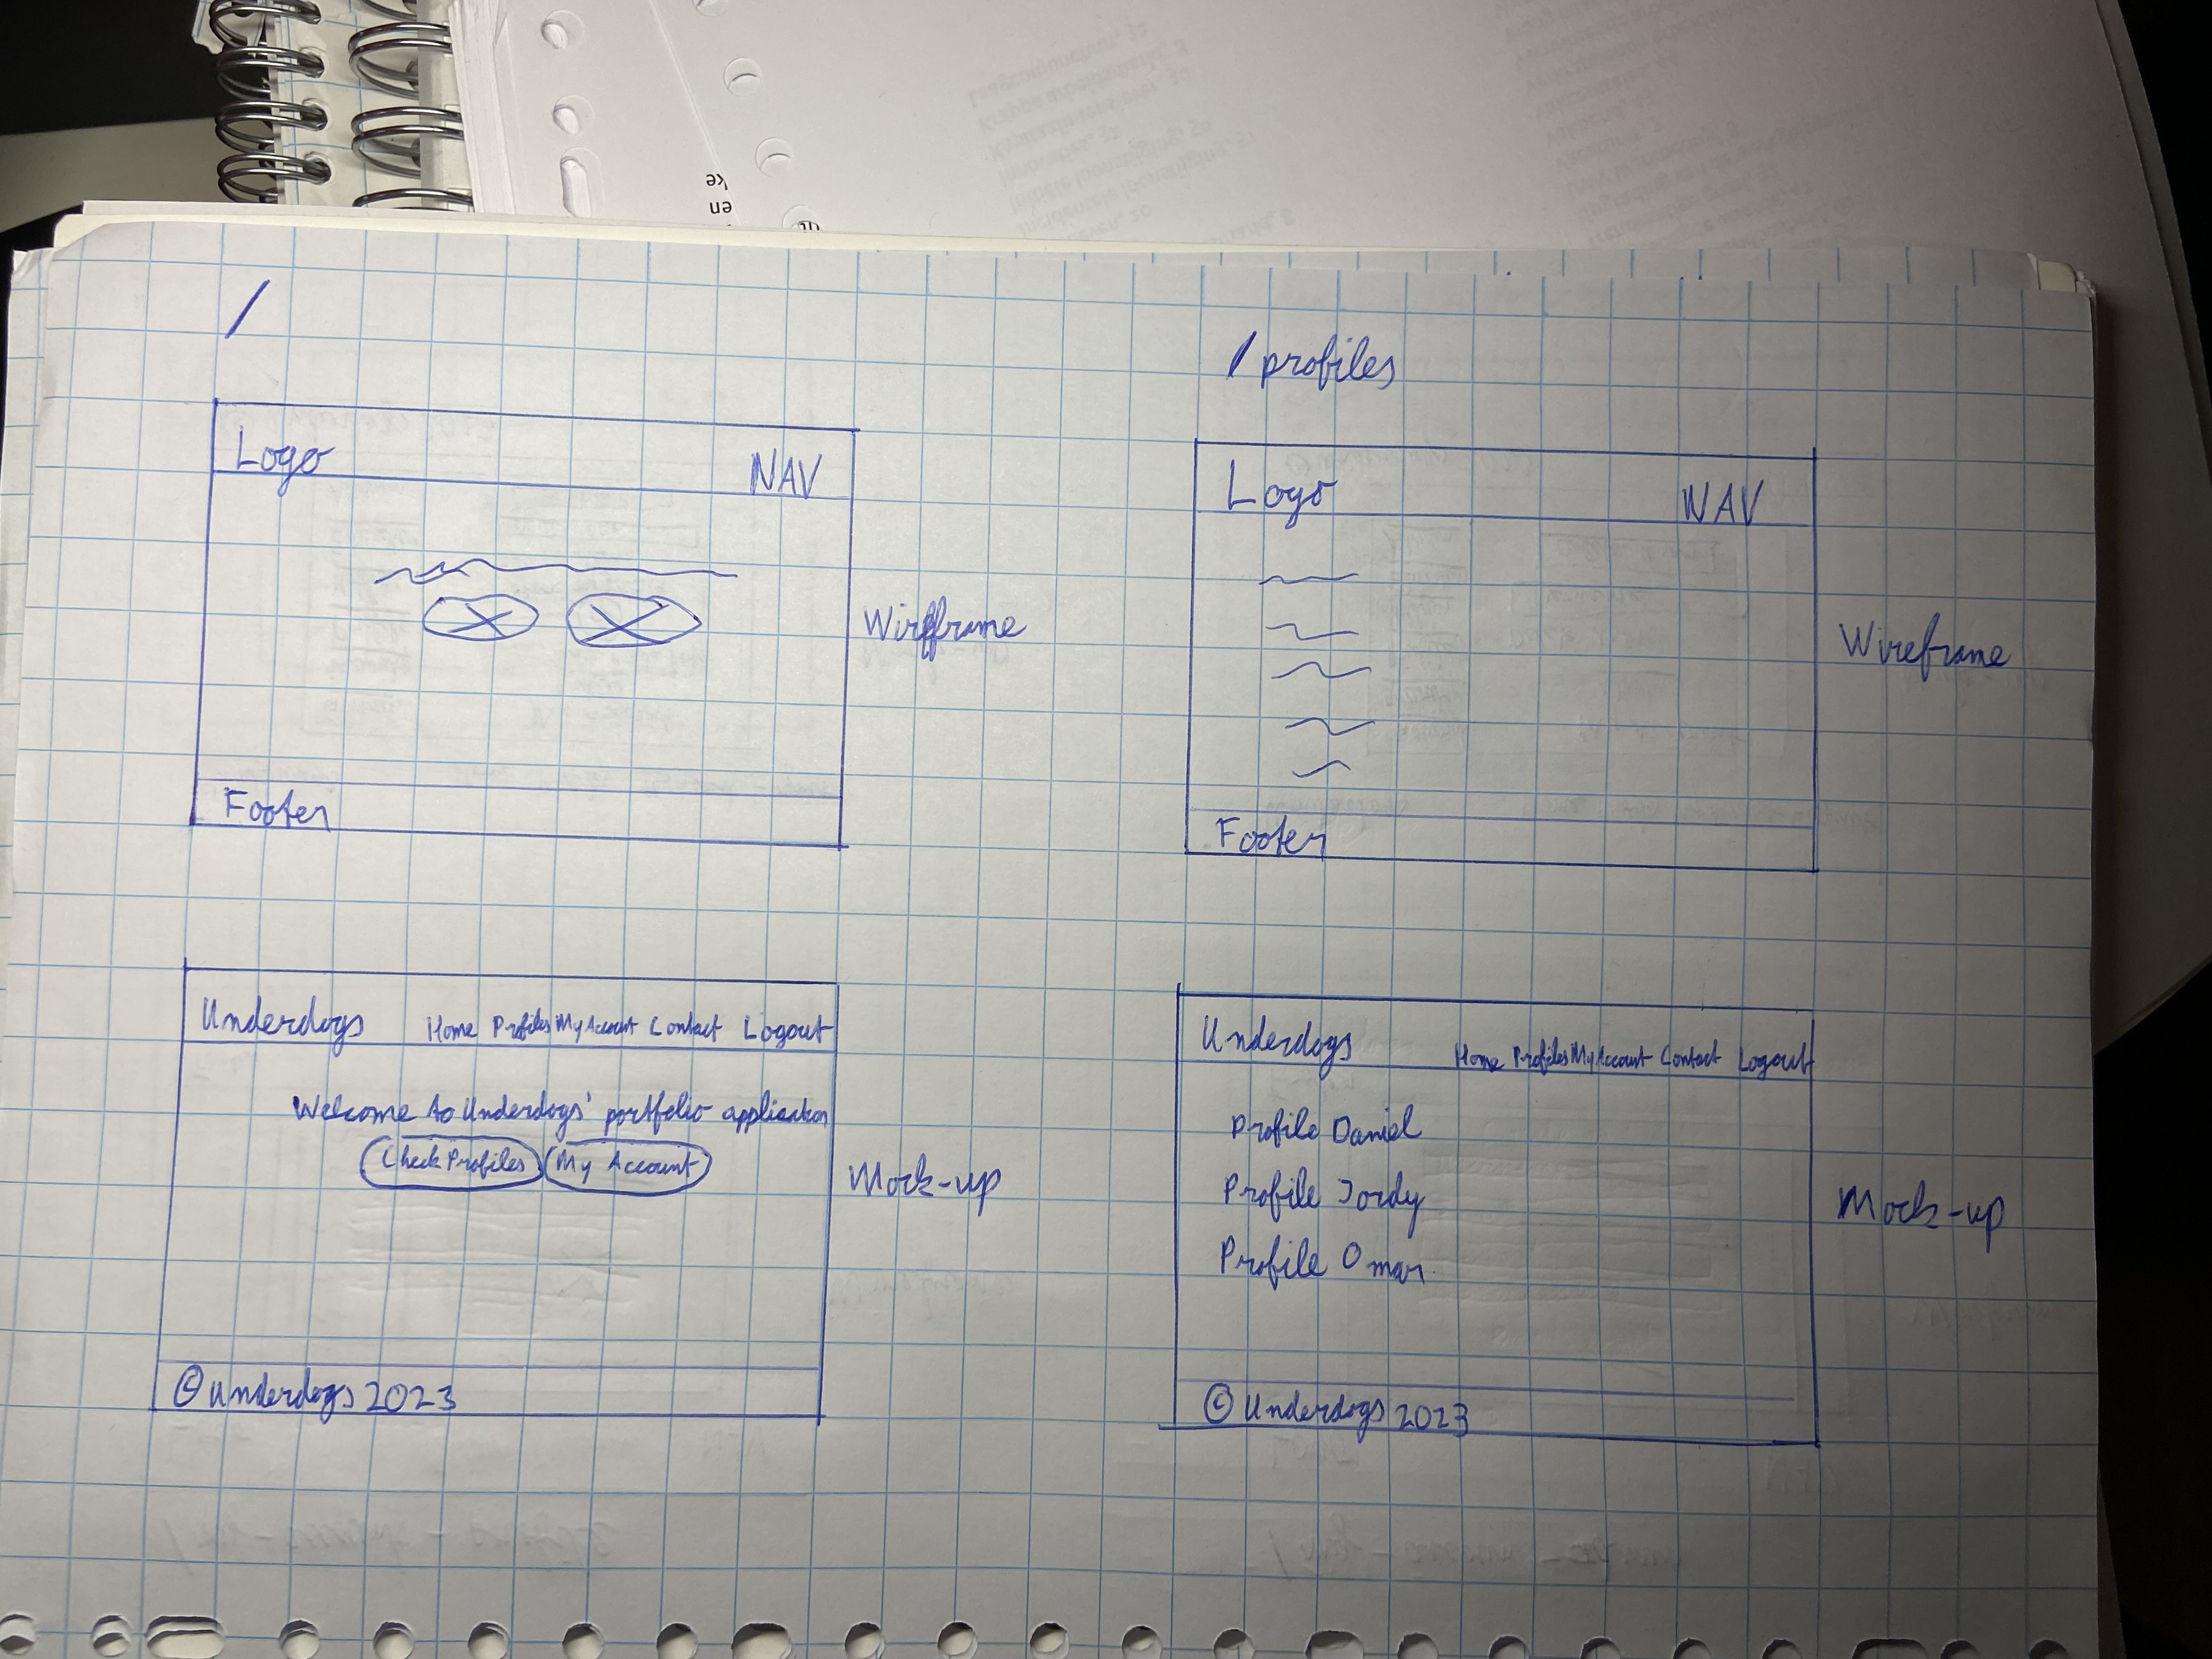 /
Logo NAV
Footer
Wireframe
Underdogs Home Profiles My Account Contact Logout
Welcome to Underdogs' portfolio application
Check Profiles My Account
© Underdogs 2023
Mock-up
/profiles
Logo NAV
Footer
Wireframe
Underdogs Home Profiles My Account Contact Logout
Profile Daniel
Profile Jordy
Profile Omar
© Underdogs 2023
Mock-up
en
ke